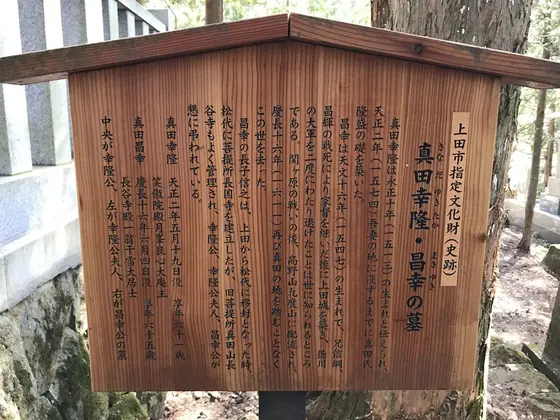 上田市指定文化財(史跡)
真田幸隆・昌幸の墓
さなだ ゆきたか まさゆき
真田幸隆は永正十年(一五一三)の生まれと伝えられ、
天正二年(一五七四)吾妻の地に没するまでに真田氏
隆盛の礎を築いた。
昌幸は天文十六年(一五四七)の生まれで、兄信綱、
昌輝の戦死により家督を継いだ後に上田城を築き、徳川
の大軍を二度にわたり退けたことは世に知られるところ
である。関ヶ原の戦いの後、高野山九度山に配流され、
慶長十六年(一六一一)再び真田の地を踏むことなく
この世を去った。
昌幸の長子信之は、上田から松代に移封となった時、
松代に菩提所長国寺を建立したが、旧菩提所真田山長
谷寺もよく管理され、幸隆公、幸隆公夫人、昌幸公が
懇に弔われている。
真田幸隆 天正二年五月十九日没 享年六十一歳
笑傲院殿月峯良心大庵主
真田昌幸 慶長十六年六月四日没 享年六十五歳
長谷寺殿一翁千雪大居士
中央が幸隆公、左が幸隆公夫人、右が昌幸公の墓